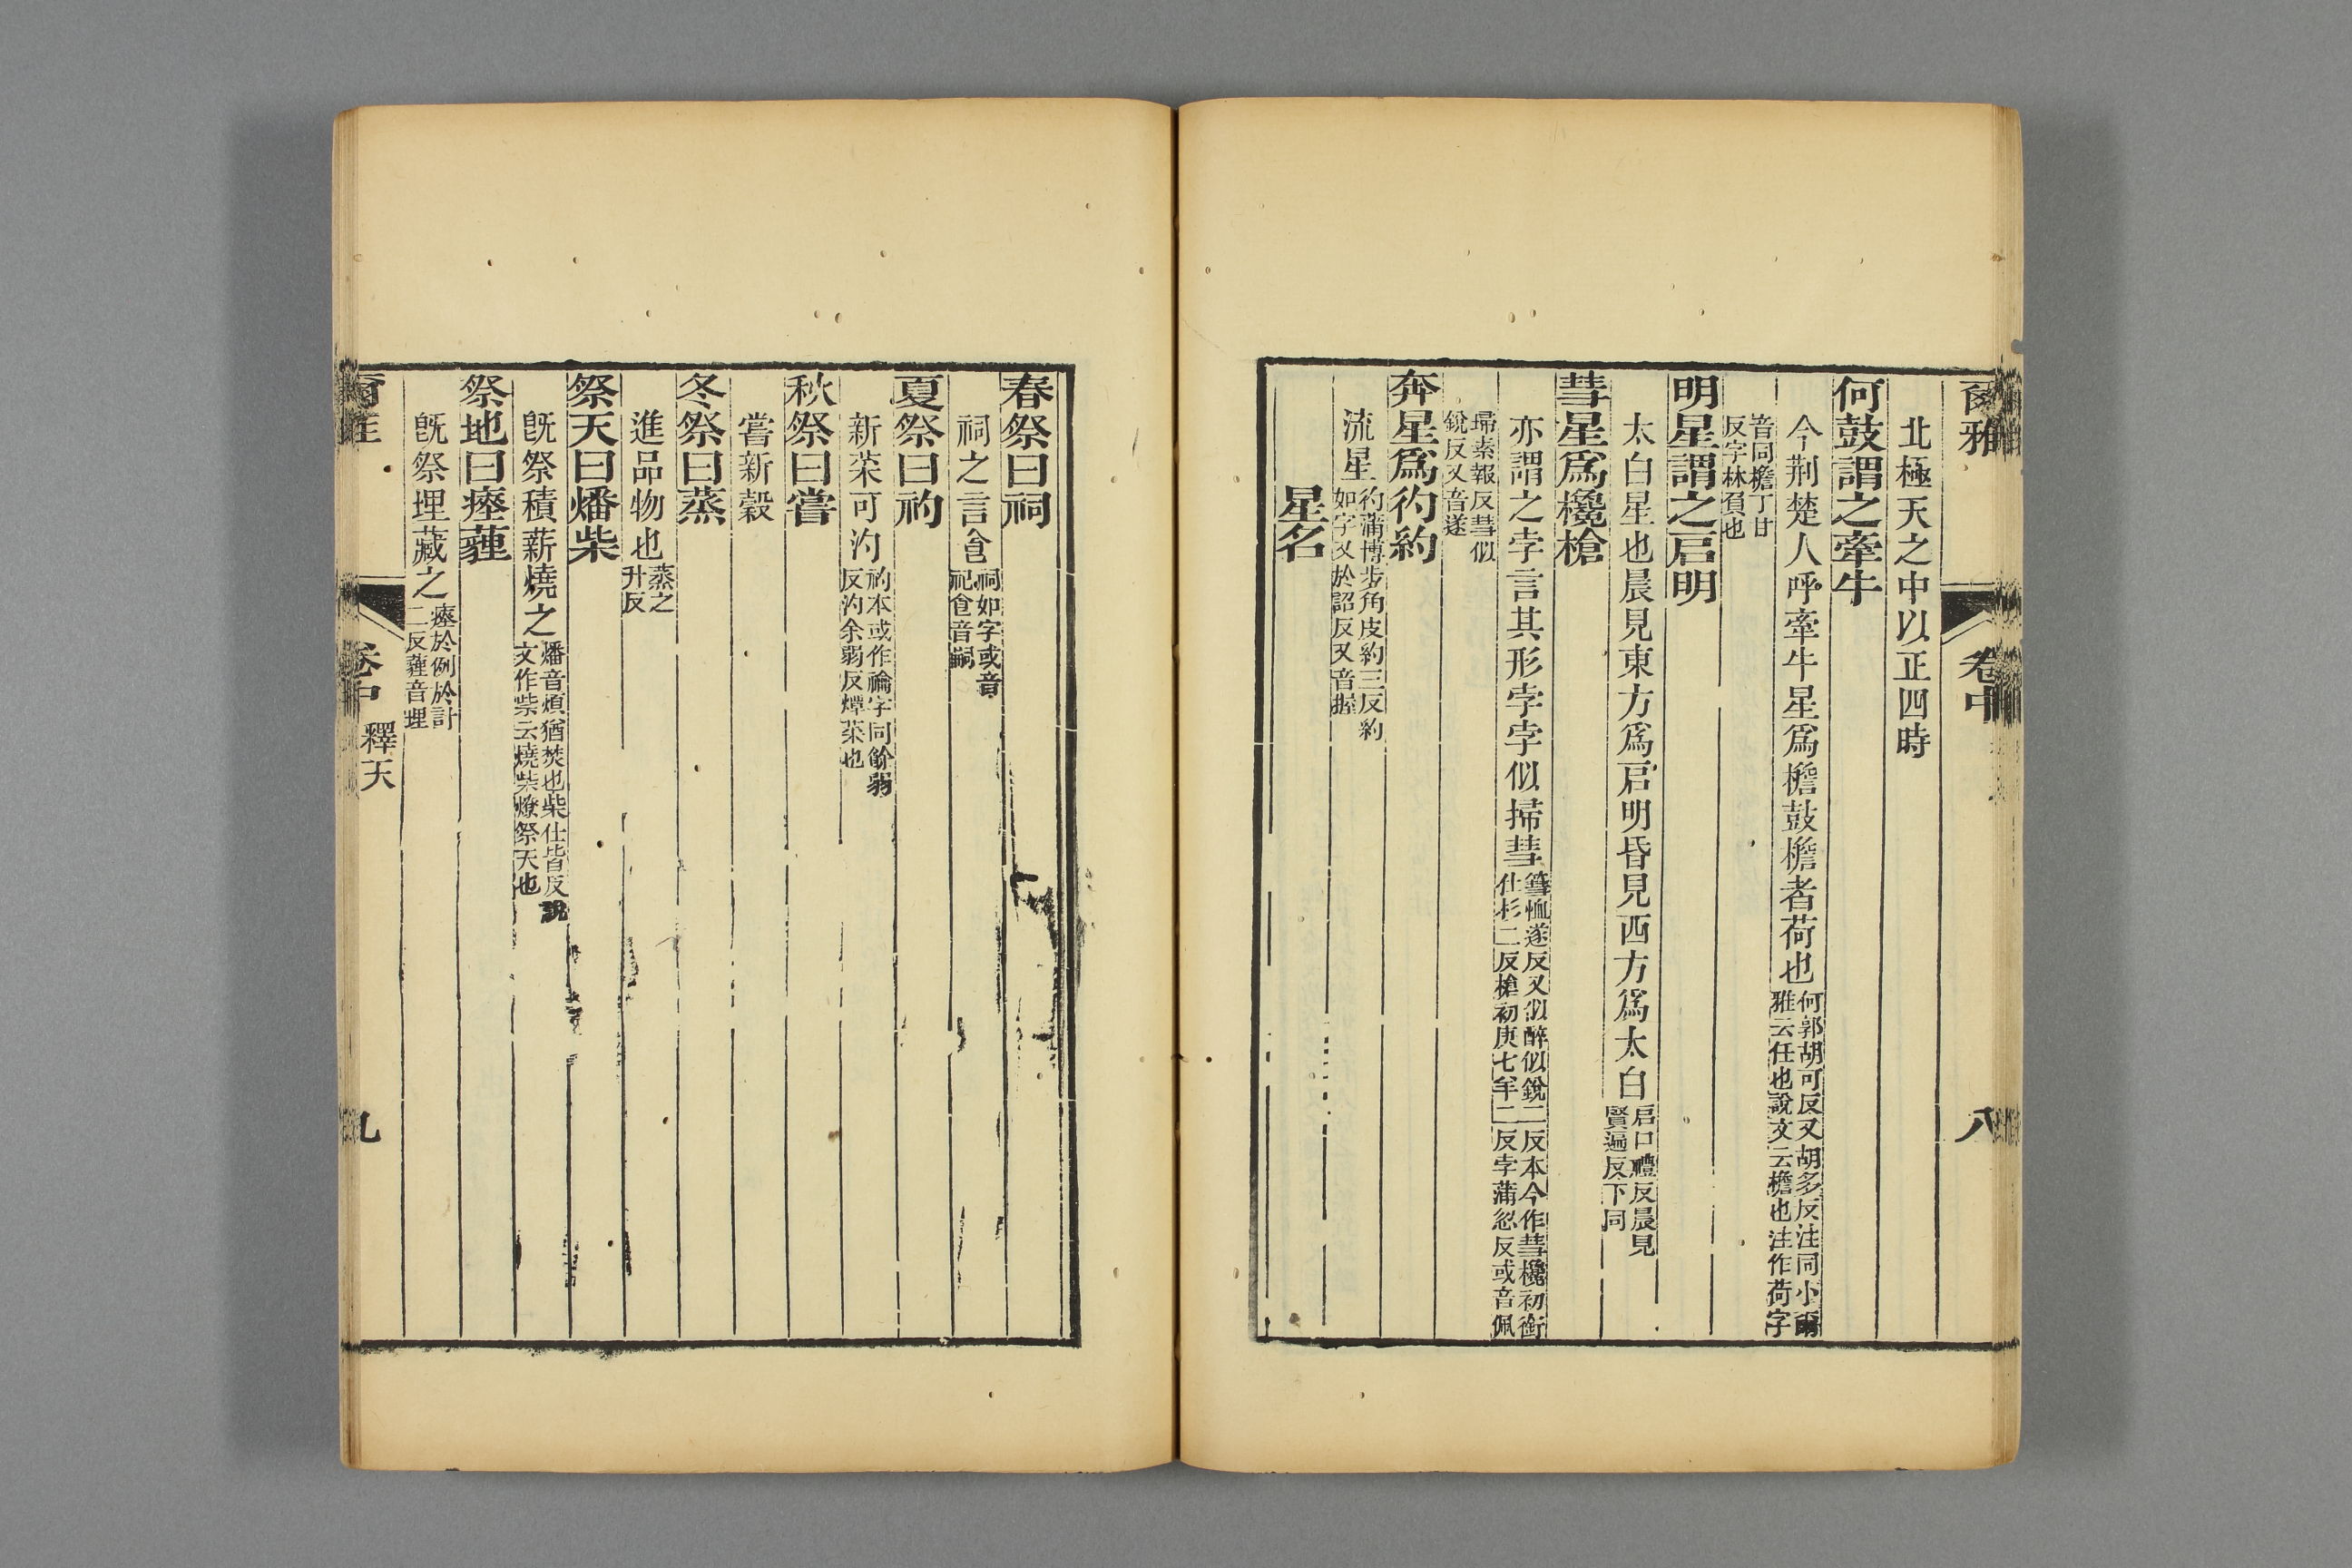 爾雅 卷中 八
北極天之中以正四時
何鼓謂之牽牛
今荆楚人呼牽牛星爲檐鼓檐者荷也何郭胡可反又胡多反注同小爾雅云任也說文云檐也注作荷字
音同檐丁甘反字林負也
明星謂之启明
太白星也晨見東方爲启明昏見西方爲太白启口禮反晨見賢遍反下同
彗星爲欃槍
亦謂之孛言其形孛孛似掃彗篲恤遂反又似醉似銳二反本今作彗欃初銜仕杉二反槍初庚七羊二反孛蒲忽反或音佩
埽素報反彗似銳反又音遂
奔星爲彴約
流星彴蒲博步角皮約三反約如字又於詔反又音握
星名
春祭曰祠
祠之言飤祠如字或音祀飤音嗣
夏祭曰礿
新菜可汋礿本或作禴字同餘弱反汋余弱反燂菜也
秋祭曰嘗
嘗新穀
冬祭曰蒸
進品物也蒸之升反
祭天曰燔柴
旣祭積薪燒之燔音煩猶焚也柴仕皆反說文作祡云燒柴燎祭天也
祭地曰瘞薶
旣祭埋藏之瘞於例於計二反薶音埋
卷中 釋天 九